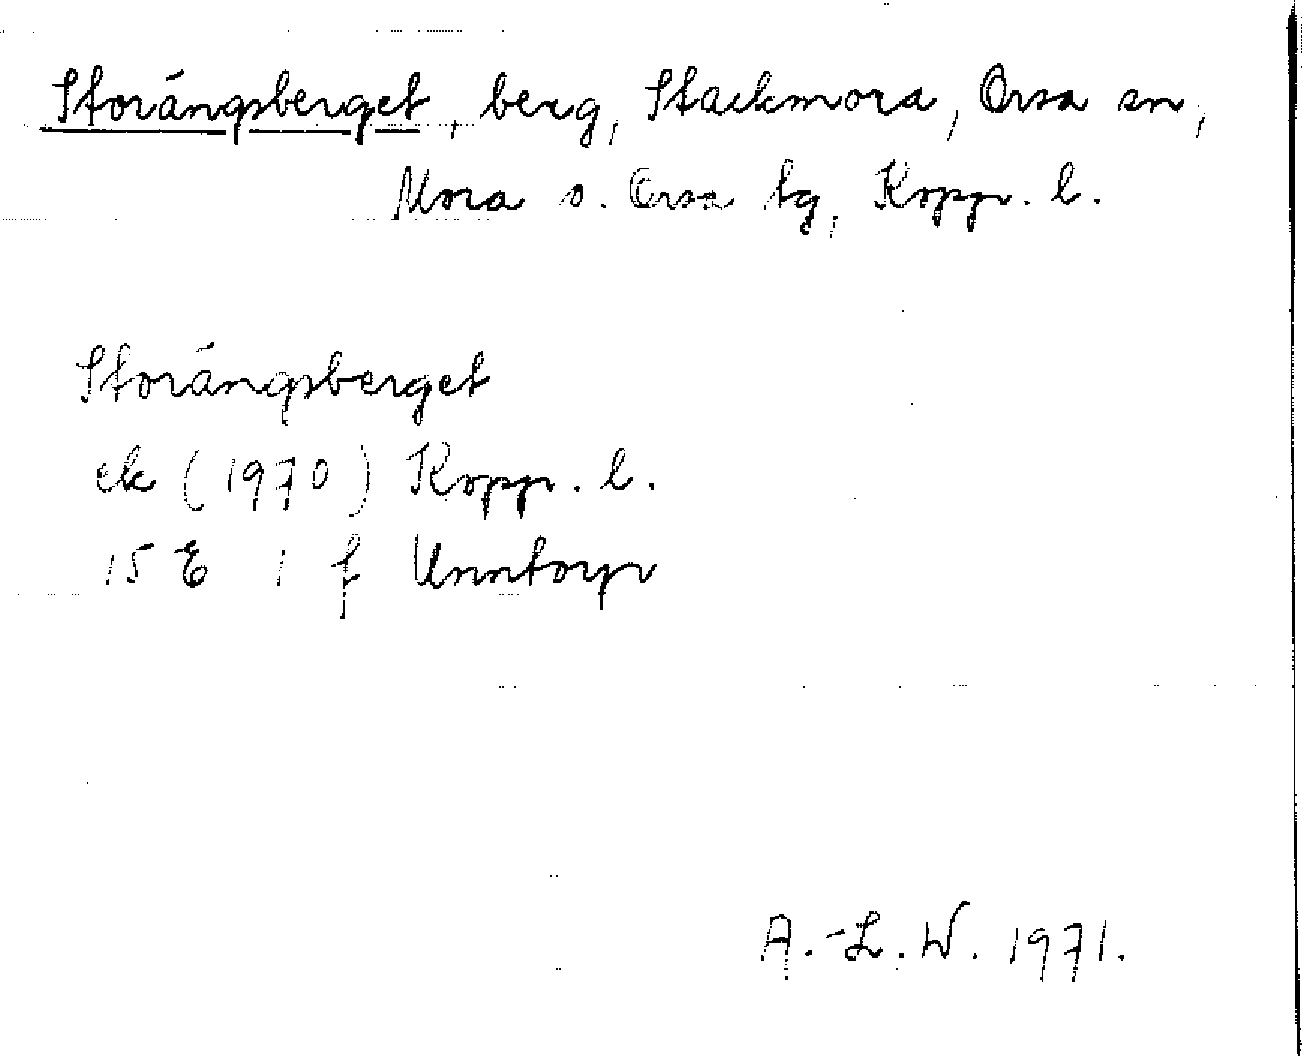 Storängsberget, berg, Stackmora, Orsa sn,
Mora o. Orsa tg, Kopp. l.
Storängsberget
ek (1970) Kopp. l.
15 E 1 f Unntorp
A.-L. W. 1971.